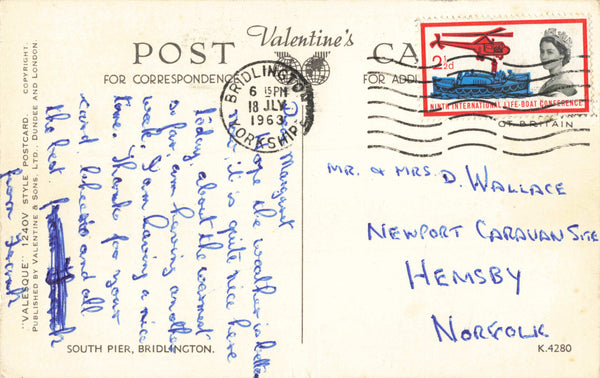 POST CARD
Valentine's
FOR CORRESPONDENCE
FOR ADD
OF BRITAIN
BRIDLINGTON
6 15 PM
18 JLY
1963
YORKSHIRE
2½d
NINTH INTERNATIONAL LIFE-BOAT CONFERENCE
"VALESQUE" 1240V STYLE POSTCARD. COPYRIGHT.
PUBLISHED BY VALENTINE & SONS, LTD., DUNDEE AND LONDON.
Margaret
hope the weather is better
it is quite nice here
today, about the warmest
so far, am having another
week. I am having a nice
time. Thanks for your
card, cheerio and all
the best,
from
MR. & MRS D. WALLACE
NEWPORT CARAVAN SITE
HEMSBY
NORFOLK
SOUTH PIER, BRIDLINGTON.
K.4280